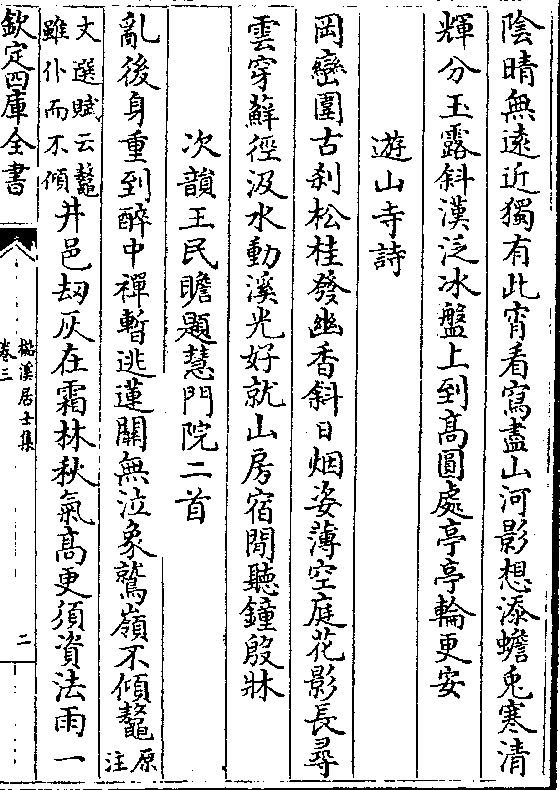 陰晴無遠近獨有此宵看寫盡山河影想添蟾兎寒清
輝分玉露斜漢泛冰盤上到髙圓處亭亭輪更安
遊山寺詩
岡巒圍古刹松桂發幽香斜日烟姿薄空庭花影長尋
雲穿蘚徑汲水動溪光好就山房宿閒聽鐘殷牀
次韻王民瞻題慧門院二首
亂後身重到醉中禪暫逃蓮關無泣象鷲嶺不傾鼇原注
文選賦云鼇雖仆而不傾井邑刼灰在霜林秋氣髙更須資法雨一
欽定四庫全書
㮚溪居士集
卷三
二